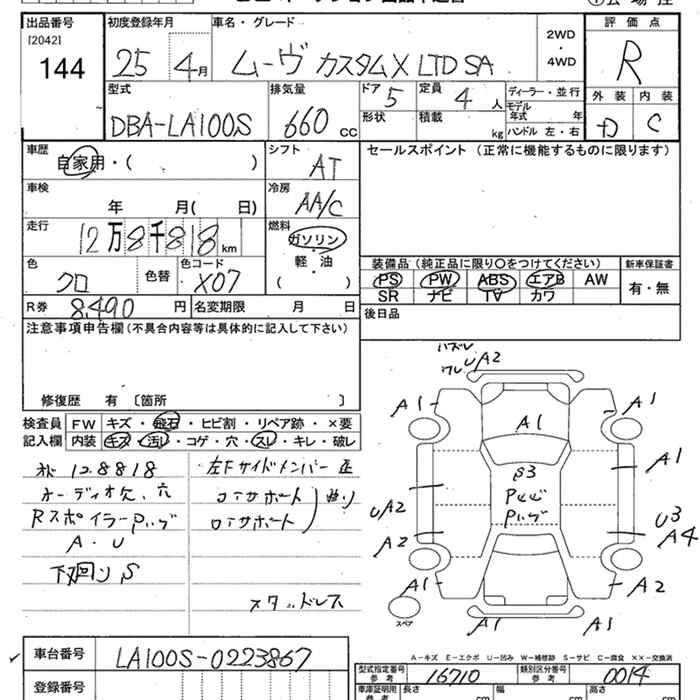 出品番号 初度登録年月 車名・グレード 2WD・4WD 評価点
[2042]
144 25年4月 ムーヴ カスタムX LTD SA R
型式 排気量 ドア 定員 ディーラー・並行 外装 内装
DBA-LA100S 660 cc 5 4人 モデル年式 年 D C
形状 積載 kg ハンドル 左・右
車歴 シフト セールスポイント(正常に機能するものに限ります)
自家用・( ) AT
車検 冷房
年 月( 日) AA/C
走行 燃料
12万8千818km ガソリン
軽・油
( )
色 色替 色コード 装備品(純正品に限り○をつけてください) 新車保証書
クロ X07 PS PW ABS エアB AW 有・無
SR ナビ TV カワ
R券 8,490円 名変期限 月 日 後日品
注意事項申告欄(不具合内容等は具体的に記入して下さい)
修復歴 有〔箇所 〕
検査員 FW キズ・飛石・ヒビ割・リペア跡・×要
記入欄 内装 キズ・汚レ・コゲ・穴・スレ・キレ・破レ
128818
オーディオ欠、穴
RスポイラーPハゲ
A・U
下廻りS
左Fサイドメンバー 正
コアサポート 曲り
ロアサポート
スタッドレス
ハズレ
ワレ UA2
A1 A1
A1
A1
UA2 U3
A2 A4
A1 A2
A1 A1
スペア
A-キズ E-エクボ U-凹み W-補修跡 S-サビ C-腐食 ××-交換済
車台番号 LA100S-0223867
登録番号
型式指定番号 参考 16710 類別区分番号 参考 0014
車庫証明用 参考 長さ cm 幅 cm 高さ cm